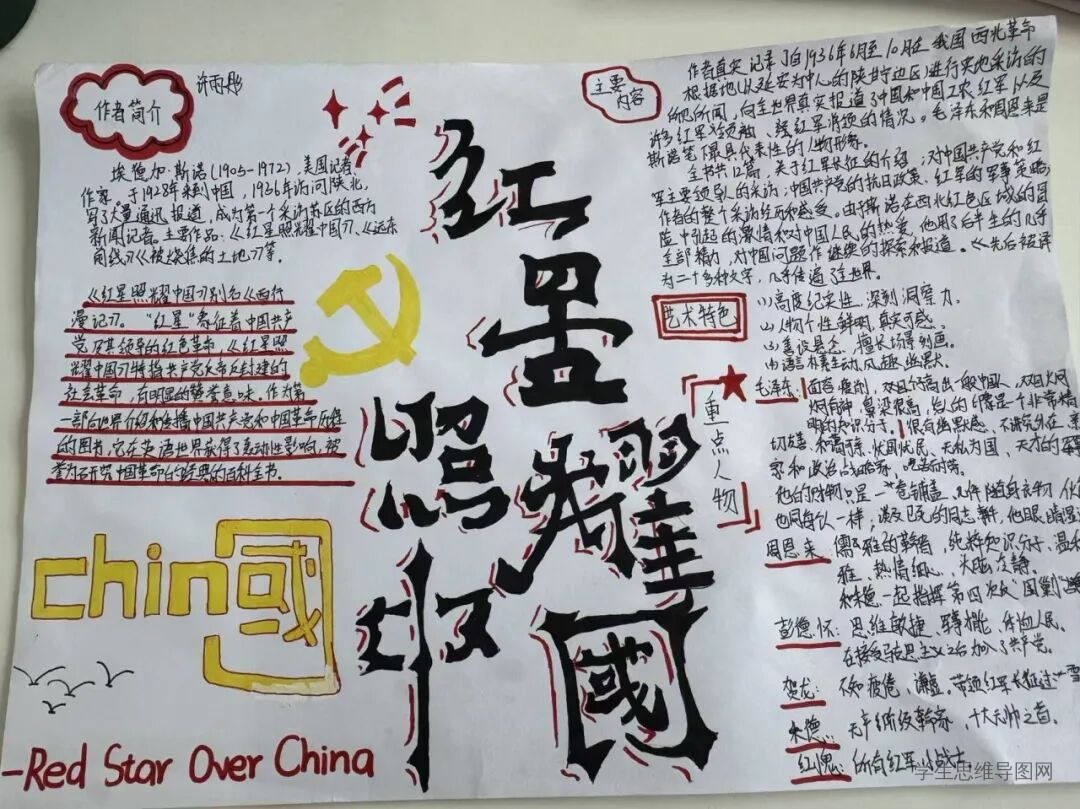 作者简介
许雨彤
埃德加·斯诺(1905-1972),美国记者
作家。于1928年来到中国,1936年访问陕北,
写了大量通讯报道,成为第一个采访苏区的西方
新闻记者。主要作品:《红星照耀中国》、《远东
前线》《被烧焦的土地》等。
《红星照耀中国》别名《西行
漫记》。“红星”象征着中国共产
党及其领导的红色革命,《红星照
耀中国》特指共产党反帝反封建的
社会革命,有明显的赞誉意味。作为第
一部向世界介绍和传播中国共产党和中国革命历程
的图书,它在英语世界获得了轰动性影响,被
誉为研究中国革命的经典的百科全书。
china國
-Red Star Over China
红星照耀中國
主要
内容
作者真实记录了自1936年6月至10月在我国西北革命
根据地(以延安为中心的陕甘宁边区)进行实地采访的
所见所闻,向全世界真实报道了中国和中国工农红军以及
许多红军领袖、红军将领的情况。毛泽东和周恩来是
斯诺笔下最具代表性的人物形象。
全书共12篇,关于红军长征的介绍;对中国共产党和红
军主要领导人的采访;中国共产党的抗日政策,红军的军事策略;
作者的整个采访经历和感受。由于斯诺在西北红色区域的冒
险中引起的激情和对中国人民的热爱,他用了后半生的几乎
全部精力,对中国问题作继续的探索和报道。先后被译
为二十多种文字,几乎传遍了全世界。
艺术特色
(1)高度纪实性,深刻洞察力。
(2)人物个性鲜明,真实可感。
(3)善设悬念,擅长场景刻画。
(4)语言朴素生动,风趣幽默
重点人物
毛泽东:面容瘦削,双目炯
炯有神,鼻梁很高,
明的知识分子。很有幽默感,不讲究外在,
他的财物只是一卷铺盖,几件随身衣物,
也同每个人一样,
周恩来 儒雅的革命者,纯粹知识分子、温和
雅、热情细心、大胆冷静。
和朱德一起指挥第四次反“围剿”
彭德怀:思维敏捷、
在接受马克思主义之后加入了共产党。
贺龙:不知疲倦、谦虚。带领红军长征过
朱德:无产阶级革命家 十大元帅之首。
红小鬼:所有红军小战士。
学生思维导图网